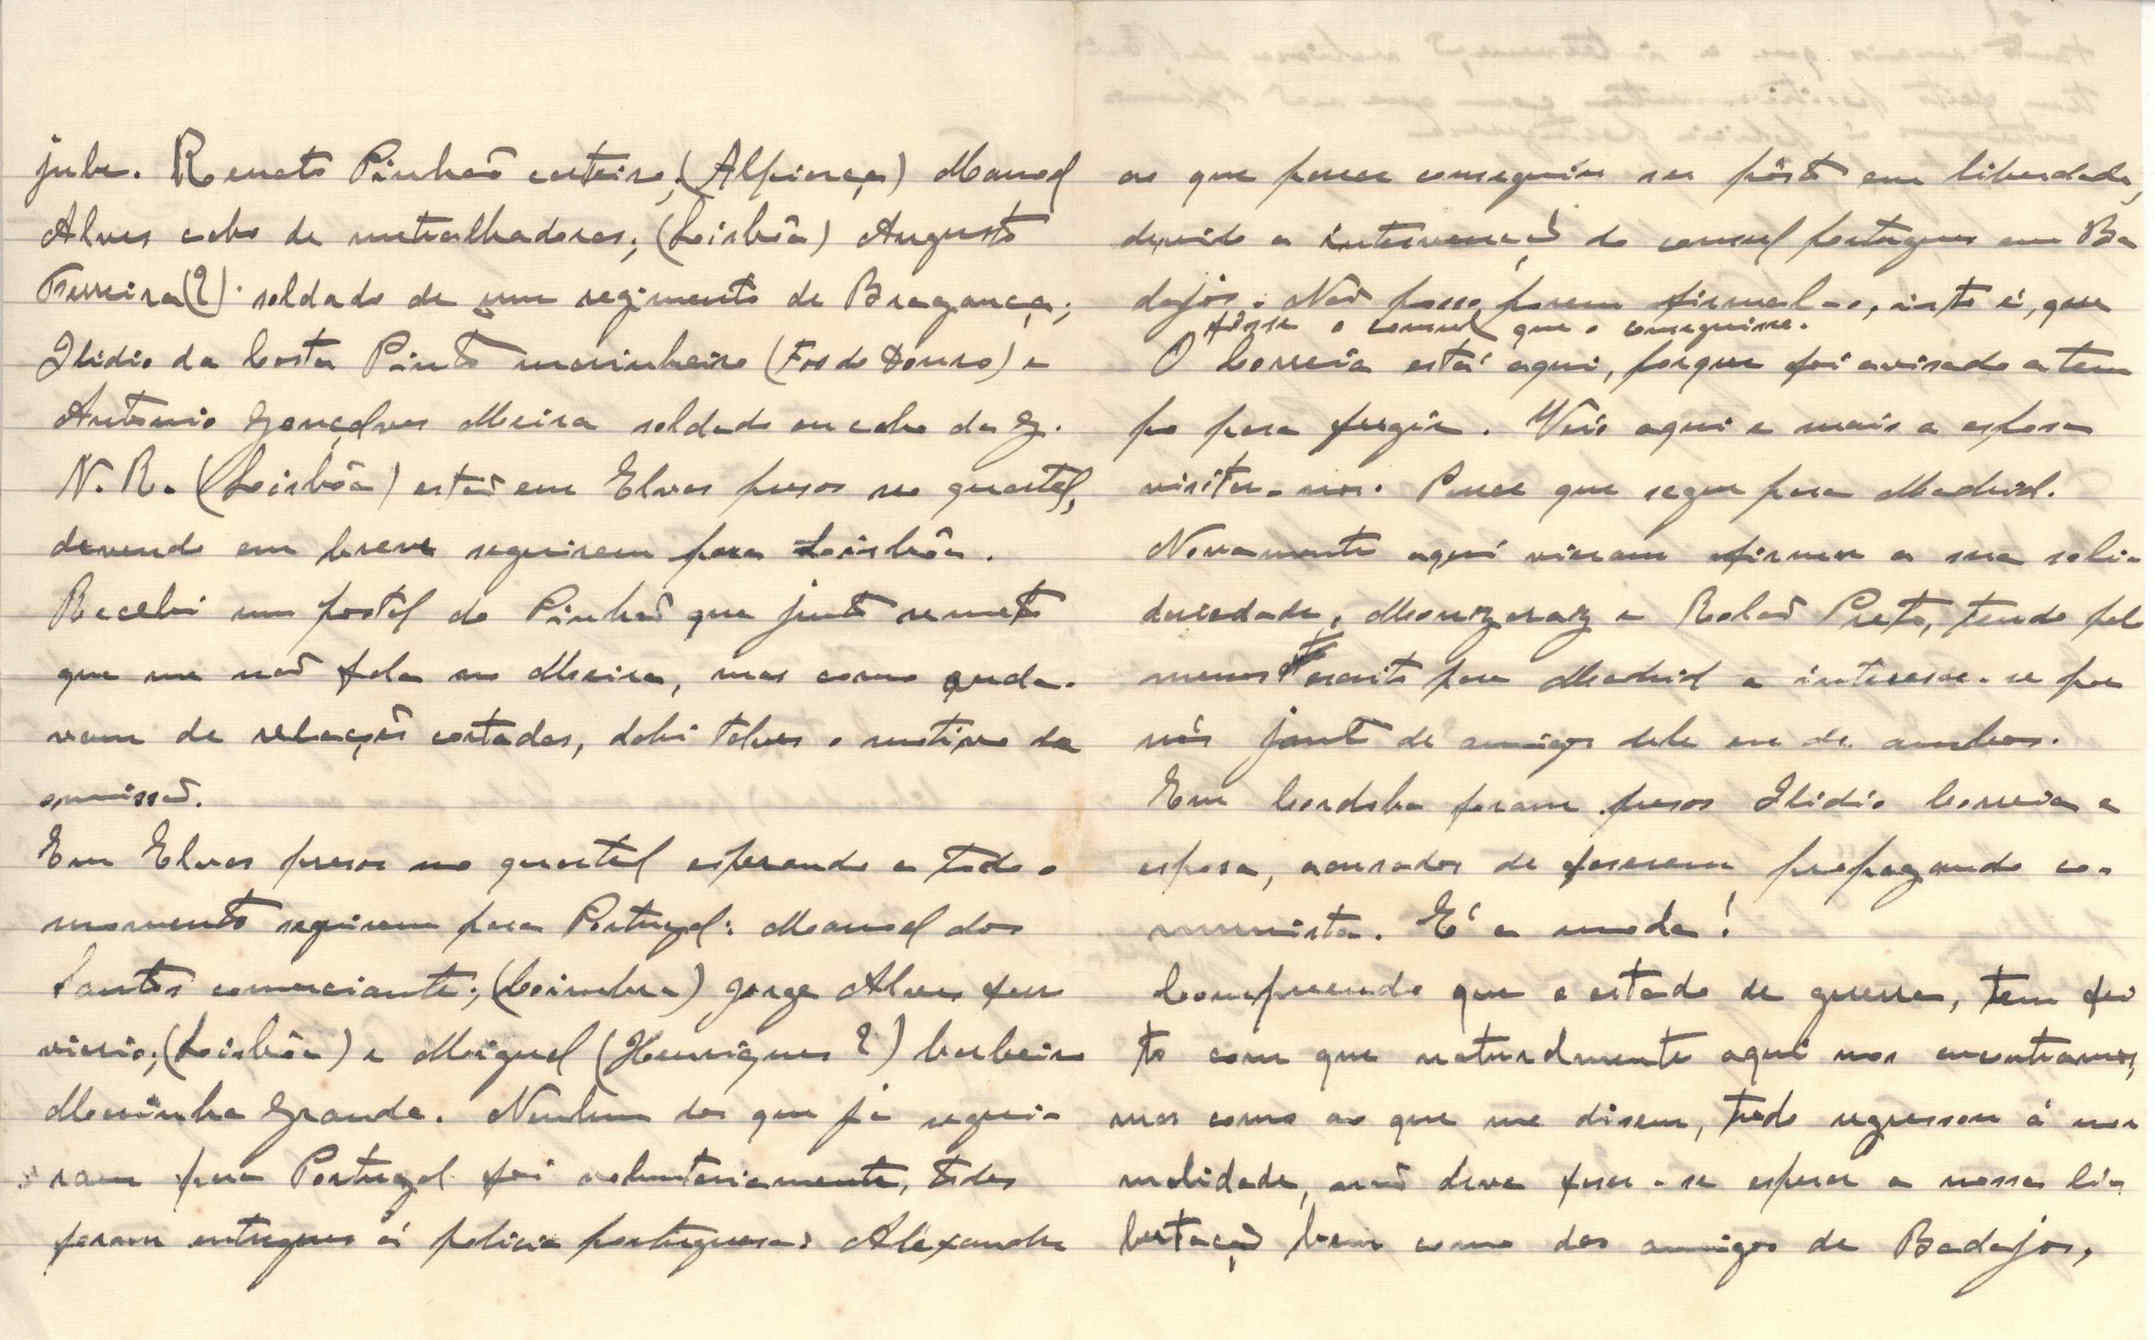 jube. Renato Pinhão carteiro, (Alpiarça) Manoel
Alves cabo de metralhadoras; (Leisbôa) Augusto
Ferreira (?) soldado de um regimento de Bragança;
Ilidio da Costa Pinto marinheiro (Fos do Douro) e
Antonio Gonçalves Meira soldado ou cabo da G.
N. R. (Leisbôa) estão em Elvas presos no quartel,
devendo em breve seguirem para Leisbôa.
Recebi um postal do Pinhão que junto remeto
que me não fala no Meira, mas como anda-
vam de relações cortadas, dahi talves o motivo da
omissão.
Em Elvas presos no quartel esperando a todo o
momento seguirem para Portugal: Manoel dos
Santos comerciante; (Coimbra) Jorge Alves fer
viario; (Leisbôa) e Miguel (Henriques ?) barbeiro
Marinha Grande. Nenhum dos que já segui-
ram para Portugal foi voluntariamente, todos
foram entregues á policia portuguesa: Alexandre
ao que parece conseguiu ser pôsto em liberdade,
devido a intervenção do consul portugues em Ba
dajós. Não posso porem afirmal-o, isto é, que
fôsse o consul que o conseguisse.
O Correia está aqui, porque foi avisado a tem
po para fugir. Veio aqui e mais a esposa
visitar-nos. Parece que segue para Madrid.
Novamente aqui vieram afirmar a sua soli-
dariedade, Monzaraz e Rolão Preto, tendo pelo
menos escrito para Madrid a interessar-se por
nós junto de amigos dele ou de ambos.
Em Cordoba foram presos Ilidio Correia e
esposa, acusados de faserem propaganda co-
munista. E' a moda!
Compreendo que o estado de guerra, tem fei
to com que naturalmente aqui nos encontramos,
mas como ao que me disem, tudo regressou á nor
malidade, não deve faser-se esperar a nossa li-
bertação bem como dos amigos de Badajos,